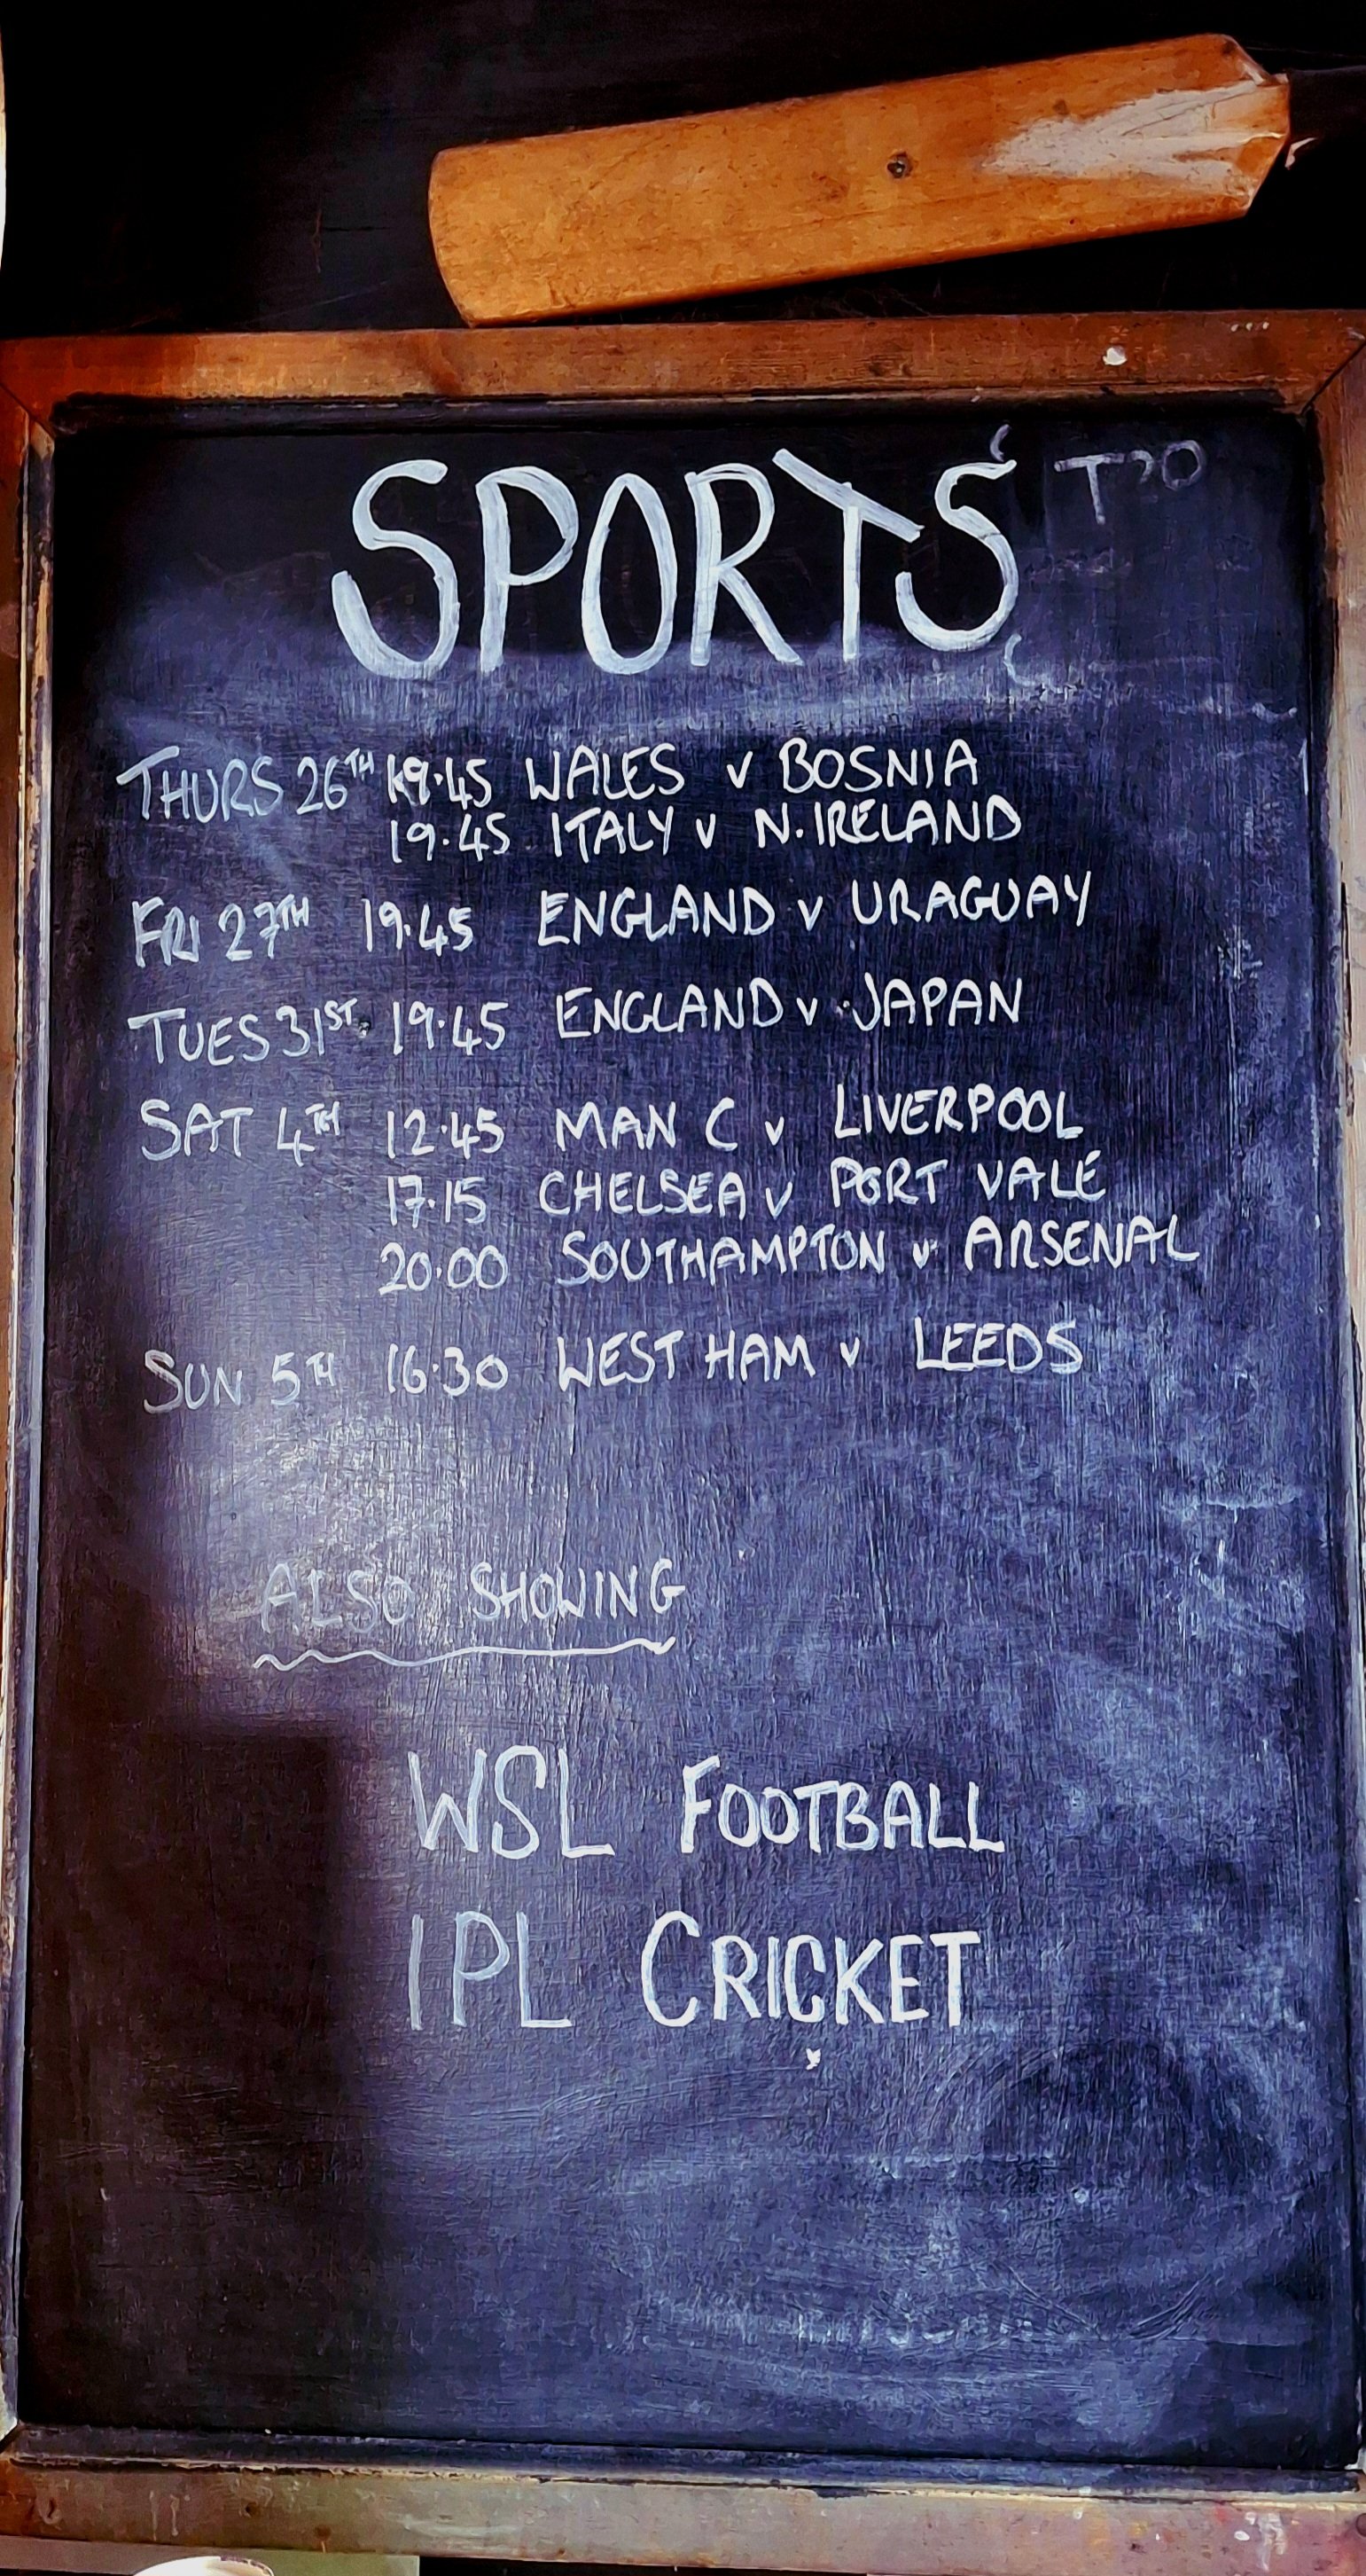 SPORTS
THURS 26TH 19.45 WALES v BOSNIA
19.45 ITALY v N.IRELAND
FRI 27TH 19.45 ENGLAND v URAGUAY
TUES 31ST 19.45 ENGLAND v JAPAN
SAT 4TH 12.45 MAN C v LIVERPOOL
17.15 CHELSEA v PORT VALE
20.00 SOUTHAMPTON v ARSENAL
SUN 5TH 16.30 WEST HAM v LEEDS
ALSO SHOWING
WSL FOOTBALL
IPL CRICKET